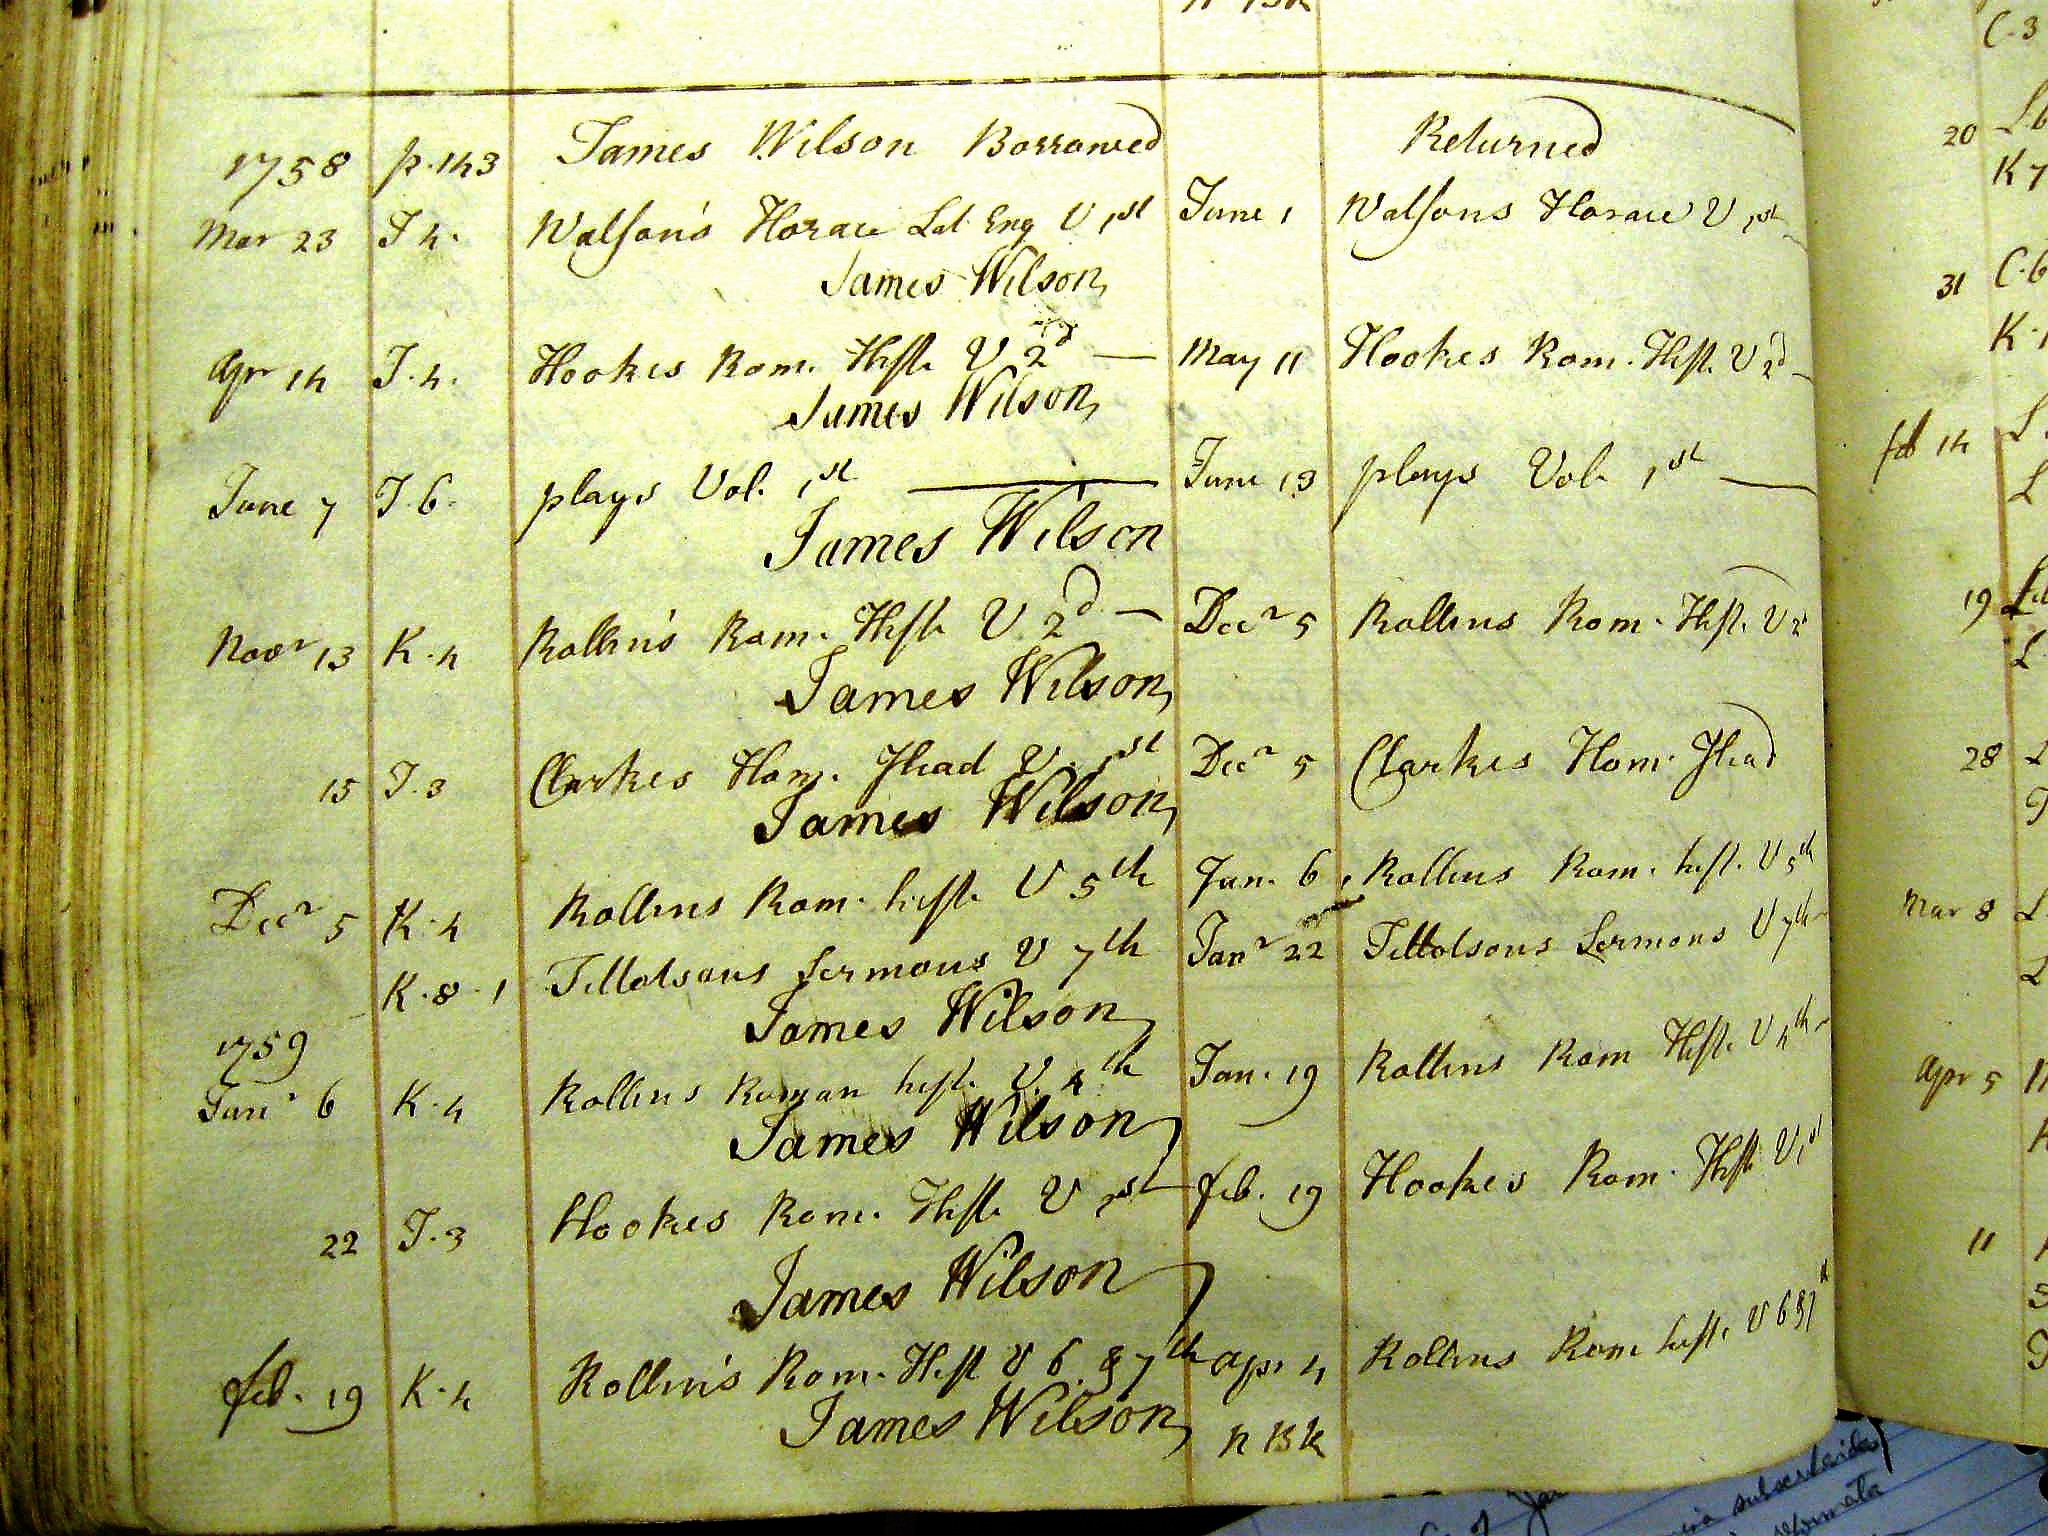 1758 p.143 James Wilson Borrowed Returned
Mar 23 J 4. Watson's Horace Lat Eng V 1st June 1 Watsons Horace V 1st
James Wilson
Apr 14 J.4. Hookes Rom. Hist. V 2d — May 11 Hookes Rom. Hist. V 2d
James Wilson
June 7 J.6. plays Vol. 1st — June 13 plays Vol. 1st —
James Wilson
Novr 13 K.4 Rollin's Rom. Hist. V 2d — Decr 5 Rollins Rom. Hist. V 2d
James Wilson
15 J.3 Clarkes Hom. Iliad V. 1st Decr 5 Clarkes Hom. Iliad
James Wilson
Decr 5 K.4 Rollins Rom. hist. V 5th Jan. 6 Rollins Rom. hist. V 5th
K.8.1 Tillotsons Sermons V 7th Janr 22 Tillotsons Sermons V 7th
James Wilson
1759
Janr 6 K.4 Rollins Roman hist. V. 4th Jan. 19 Rollins Rom Hist. V 4th
James Wilson
22 J.3 Hookes Rom. Hist. V 1st feb. 19 Hookes Rom. Hist V 1st
James Wilson
feb. 19 K.4 Rollin's Rom. Hist V 6. & 7th apr 4 Rollins Rom hist. V 6 & 7th
James Wilson n 13k
20
K 7
31 C.6
feb 14
19
28
Mar 8
Apr 5
11